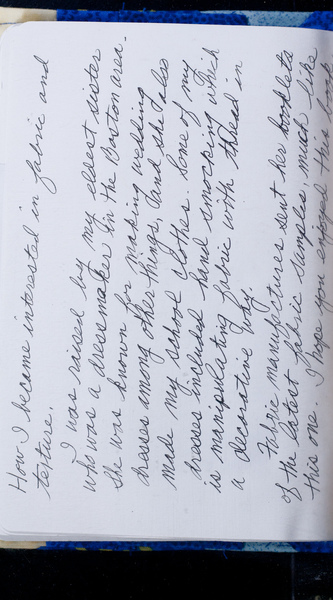 How I became interested in fabric and
texture.
I was raised by my eldest sister
who was a dressmaker in the Boston area.
She was known for making wedding
dresses among other things, and she also
made my school clothes. Some of my
dresses included hand smocking which
is manipulating fabric with thread in
a decorative way.
Fabric manufactures sent her booklets
of the latest fabric samples, much like
this one. I hope you enjoyed this book